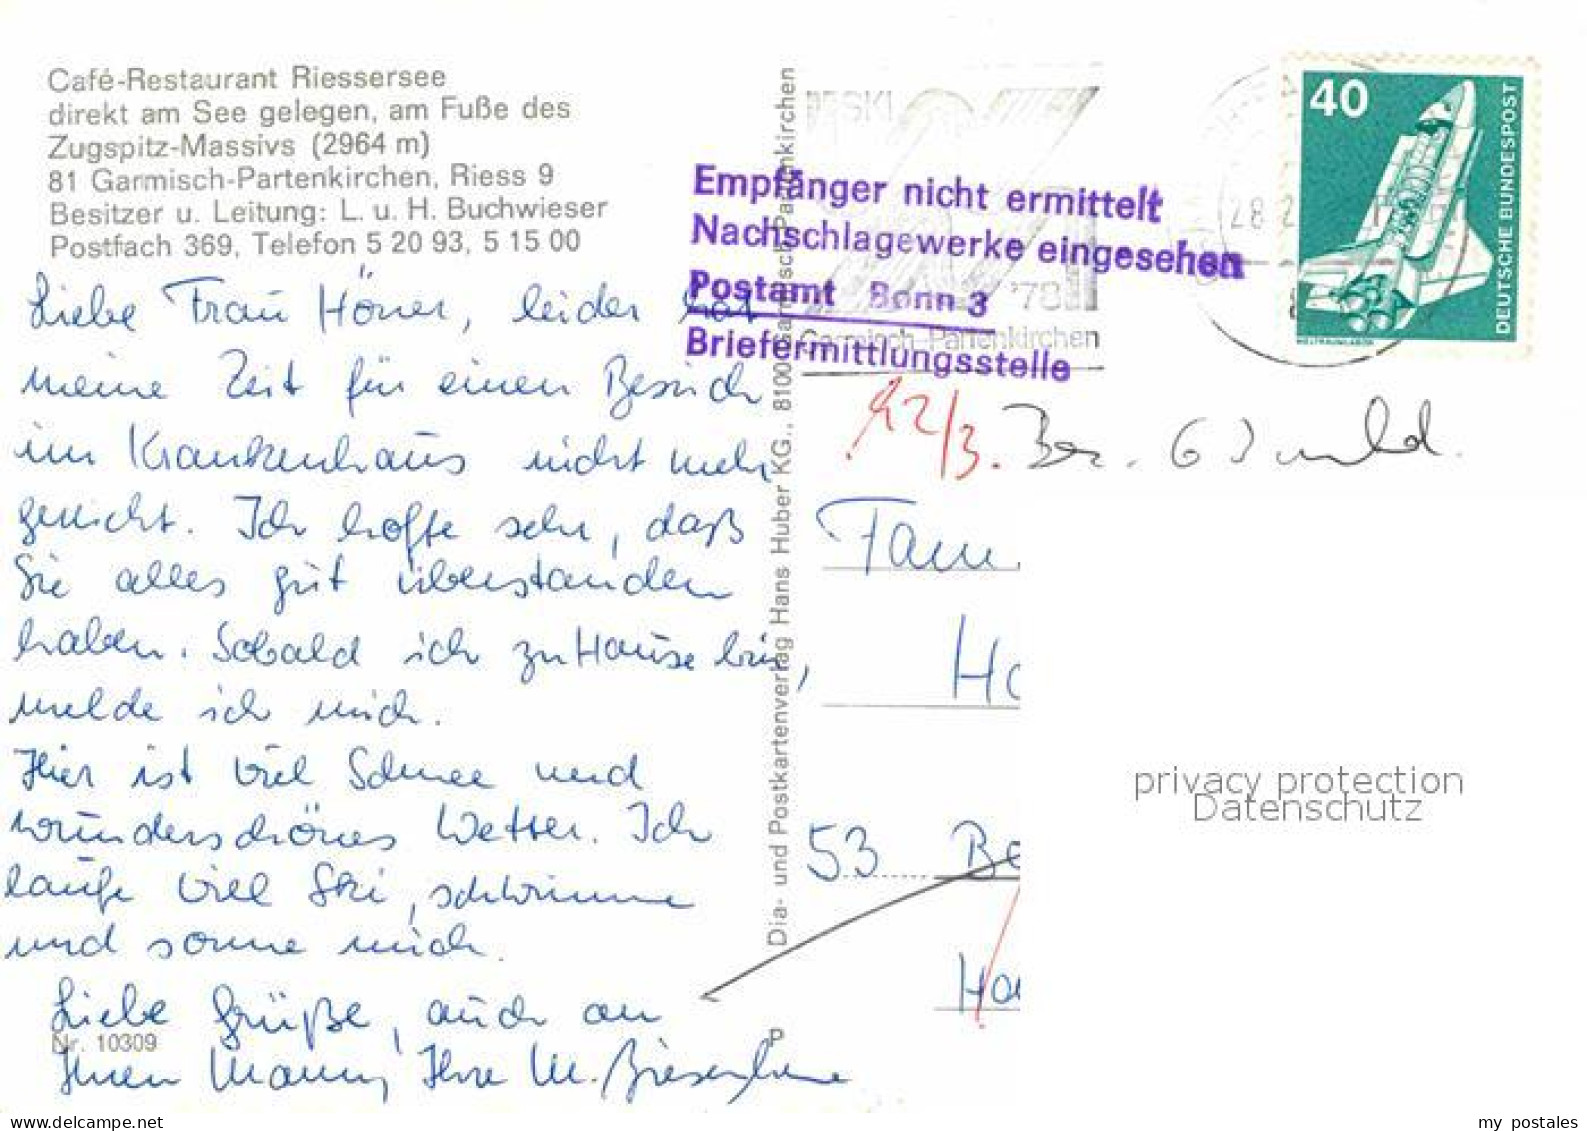 Café-Restaurant Riessersee
direkt am See gelegen, am Fuße des
Zugspitz-Massivs (2964 m)
81 Garmisch-Partenkirchen, Riess 9
Besitzer u. Leitung: L. u. H. Buchwieser
Postfach 369, Telefon 5 20 93, 5 15 00
Liebe Frau Höner, leider hat
meine Zeit für einen Besuch
im Krankenhaus nicht mehr
gereicht. Ich hoffe sehr, daß
Sie alles gut überstanden
haben. Sobald ich zu Hause bin,
melde ich mich.
Hier ist viel Schnee und
wunderschönes Wetter. Ich
laufe viel Ski, schwimme
und sonne mich.
Liebe Grüße, auch an
Ihren Mann, Ihre M.
Nr. 10309
Dia- und Postkartenverlag Hans Huber KG., 8100 Garmisch-Partenkirchen
P
SKI
'78
Garmisch-Partenkirchen
Empfänger nicht ermittelt
Nachschlagewerke eingesehen
Postamt Bonn 3
Briefermittlungsstelle
28.2
40
DEUTSCHE BUNDESPOST
WELTRAUMLABOR
22/3.
Fam.
Ho
53 Bo
Ha
privacy protection
Datenschutz
my postales